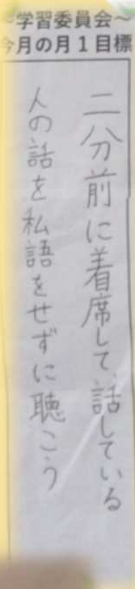 ~学習委員会~
今月の月1目標
二分前に着席して、話している
人の話を私語をせずに聴こう